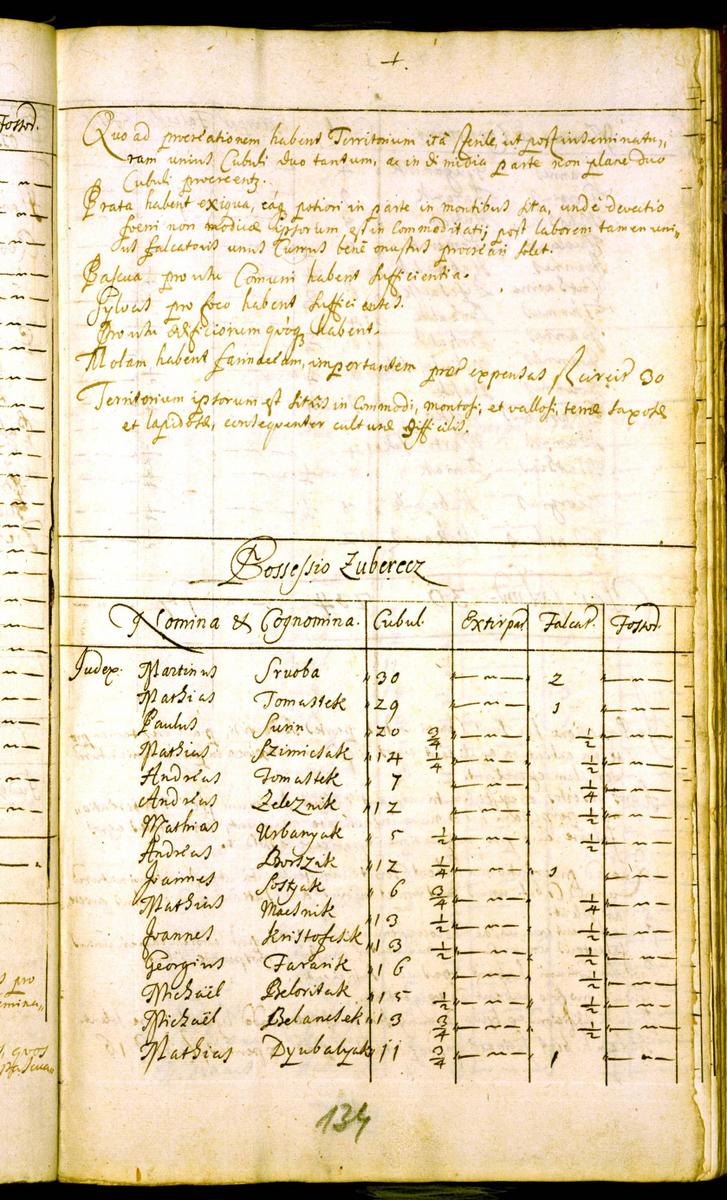 Fossor.
+
Quo ad procreationem habent Territorium ità sterile, ut post inseminatu,,
ram unius Cubuli duo tantum, ac in dimidia parte non planè duo
Cubuli procreentr.
Prata habent exiqua, eaq potiori in parte in montibus sita, undè devectio
foeni non modicae ipsorum est in Commoditatis, post laborem tamen uni,,
us falcatoris unus Currus benè onustus procreari solet.
Pascua pro usu Comuni habent sufficientia.
Sylvas pro foco habent sufficientes.
Pro usu aedificiorum quoq habent.
Molam habent importantem praeter expensas circit 30
Territorium ipsorum est sitûs in Commodi, montosi, et vallosi, terrae saxosae
et lapidosae, consequenter culturae difficilis.
Possessio Zuberecz
Nomina & Cognomina. Cubul. Extirpat Falcat. Fossor.
Judex. Martinus Sruoba " 30 " — " — 2 " — " —
Mathias Tomastek " 29 " — " — 1 " — " —
Paulus Surin " 20 3/4 " — " — 1/2 " — " —
Mathias Szimicsak " 14 1/4 " — " — 1/2 " — " —
Andreas Tomastek " 7 " — " — 1/4 " — " —
Andreas Zeleznik " 12 " — " — 1/2 " — " —
Mathias Urbanyak " 5 1/2 " — " — 1/2 " — " —
Andreas Borszak " 12 1/4 " — " — 1 " — " —
Joannes Sostyak " 6 3/4 " — " — 1/4 " — " —
Mathias Maesnik " 13 1/2 " — " — 1/2 " — " —
Joannes Kristofcsek " 13 1/2 " — " — 1/2 " — " —
Georgius Fararik " 16 " — " — 1/2 " — " —
Michaël Beloritak " 15 1/2 " — " — 1/2 " — " —
Michaël Belancsek " 13 3/4 " — " — 1/2 " — " —
Mathias Dyubalyak " 11 3/4 " — " — 1 " — " —
134